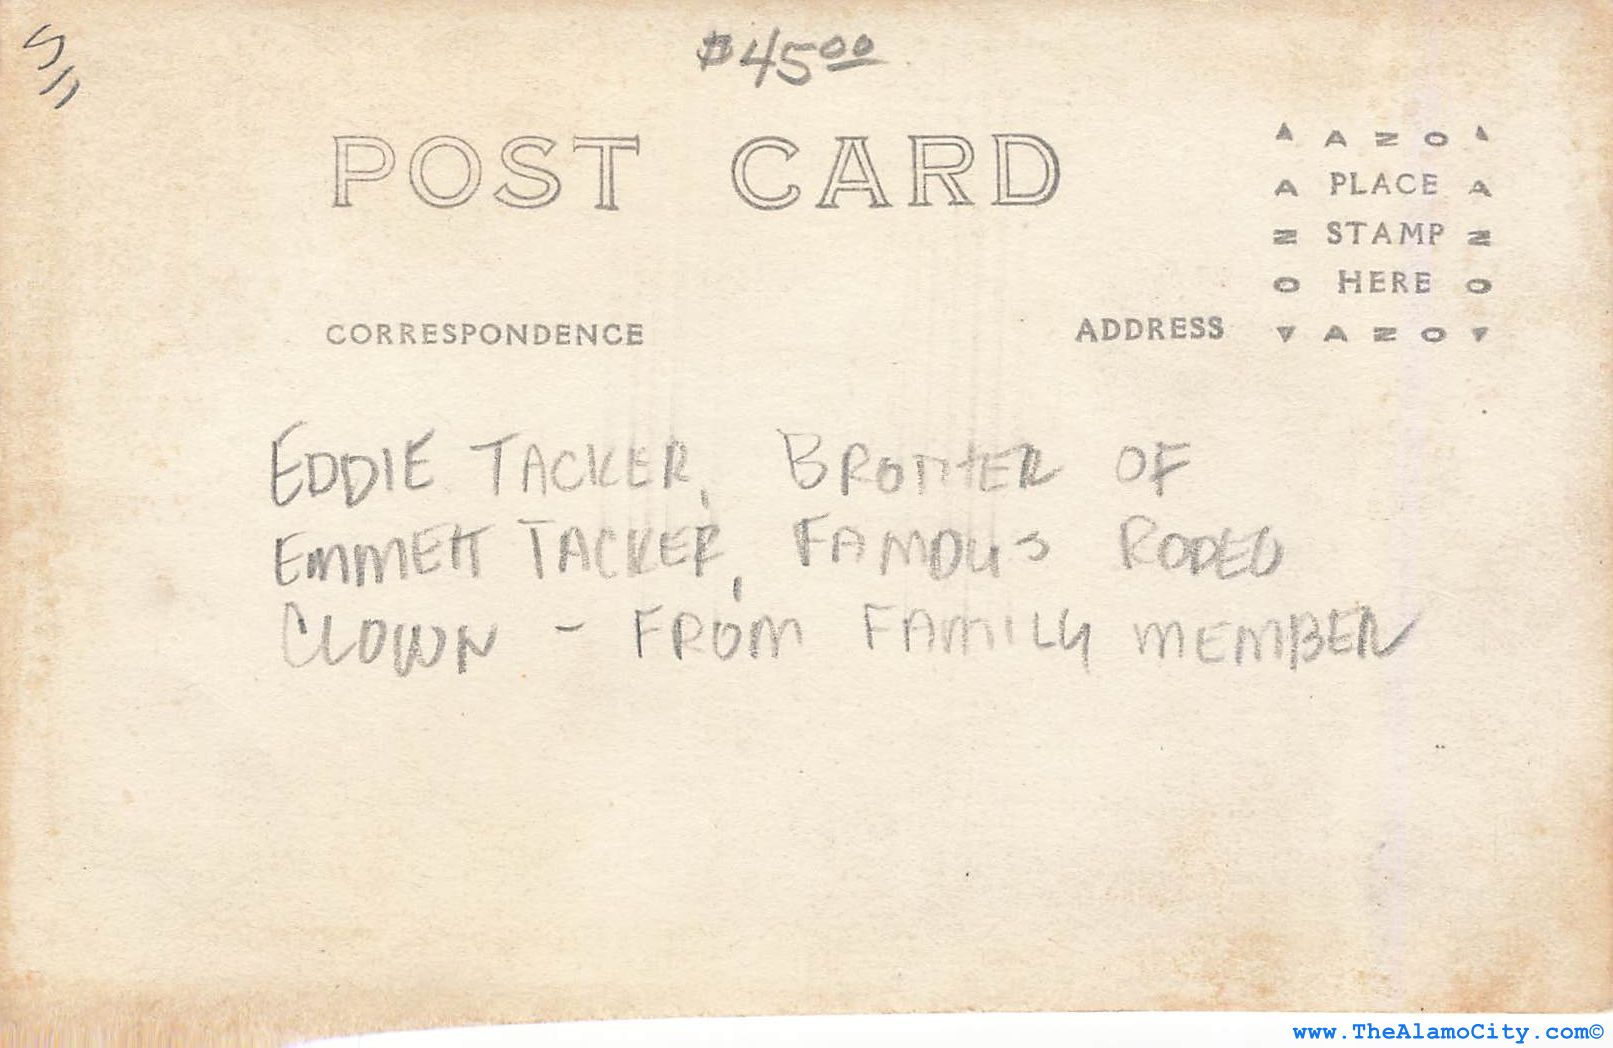 $45.00
POST CARD
A Z O
A PLACE A
N STAMP N
O HERE O
A Z O
CORRESPONDENCE
ADDRESS
EDDIE TACKER, BROTHER OF
EMMETT TACKER, FAMOUS RODEO
CLOWN - FROM FAMILY MEMBER
www.TheAlamoCity.com©